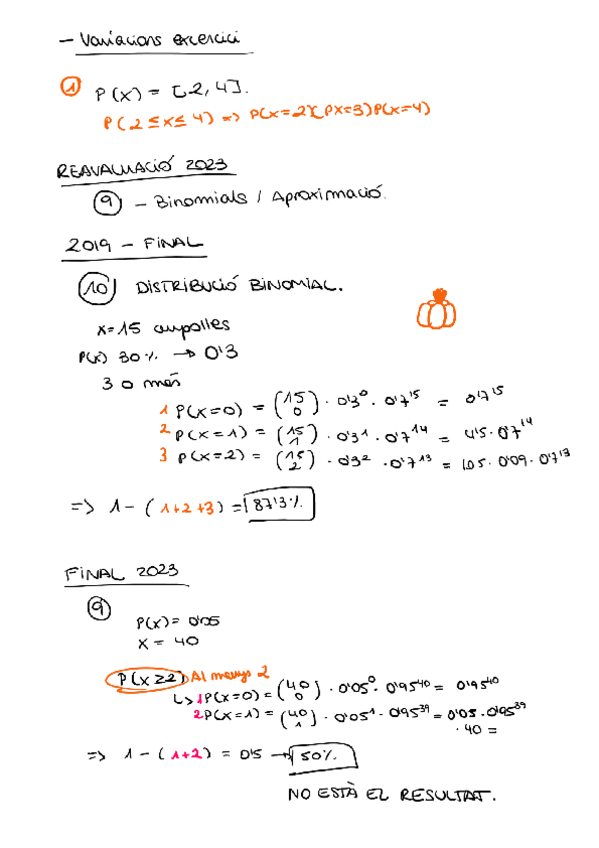 - Variacions excercici
1 P(x) = [2,4].
P(2≤x≤4) => P(x=2)(Px=3)P(x=4)
REAVALUACIÓ 2023
9 - Binomials / Aproximació.
2019 - FINAL
10 DISTRIBUCIÓ BINOMIAL.
x=15 ampolles
P(x) 30% → 0'3
3 o més
1 P(x=0) = (15 0) · 0'3⁰ · 0'7¹⁵ = 0'7¹⁵
2 P(x=1) = (15 1) · 0'3¹ · 0'7¹⁴ = 4'5·0'7¹⁴
3 P(x=2) = (15 2) · 0'3² · 0'7¹³ = 105·0'09·0'7¹³
=> 1 - (1+2+3) = 87'3%
FINAL 2023
9
P(x) = 0'05
x = 40
P(x≥2) Al menys 2
↳ 1 P(x=0) = (40 0) · 0'05⁰ · 0'95⁴⁰ = 0'95⁴⁰
2 P(x=1) = (40 1) · 0'05¹ · 0'95³⁹ = 0'05·0'95³⁹
·40 =
=> 1 - (1+2) = 0'5 → 50%
NO ESTÀ EL RESULTAT.